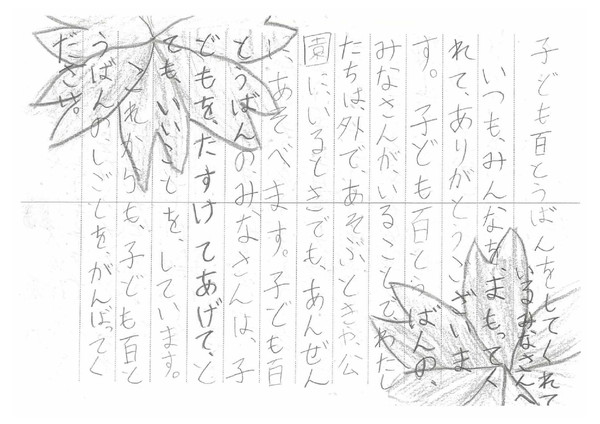 子ども百とうばんをしてくれて
いるみなさんへ
いつも、みんなを、まもってく
れて、ありがとうございま
す。子ども百とうばんの、
みなさんが、いることで、わたし
たちは、外であそぶときや、公
園にいるときでも、あんぜん
に、あそべます。子ども百
とうばんのみなさんは、子
どもを、たすけてあげて、と
てもいいことを、しています。
これからも、子ども百と
うばんのしごとを、がんばってく
ださい。